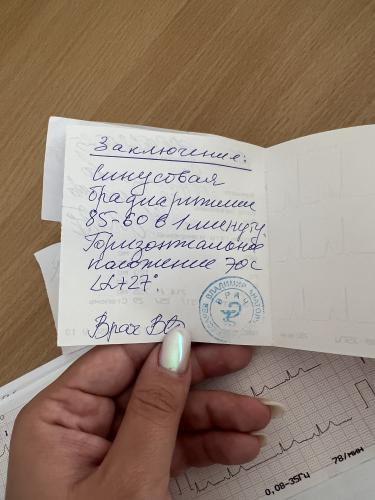 Заключение:
Синусовая
брадиаритмия
85-60 в 1 минуту.
Горизонтальное
положение ЭОС
∠α+27°.
Врач
ВЛАДИМИР
ВРАЧ
0,08-35Гц
78/мин